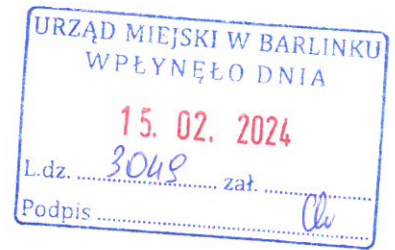 URZĄD MIEJSKI W BARLINKU
WPŁYNĘŁO DNIA
15. 02. 2024
L.dz. ..... 3049 ..... zał. .....
Podpis .....